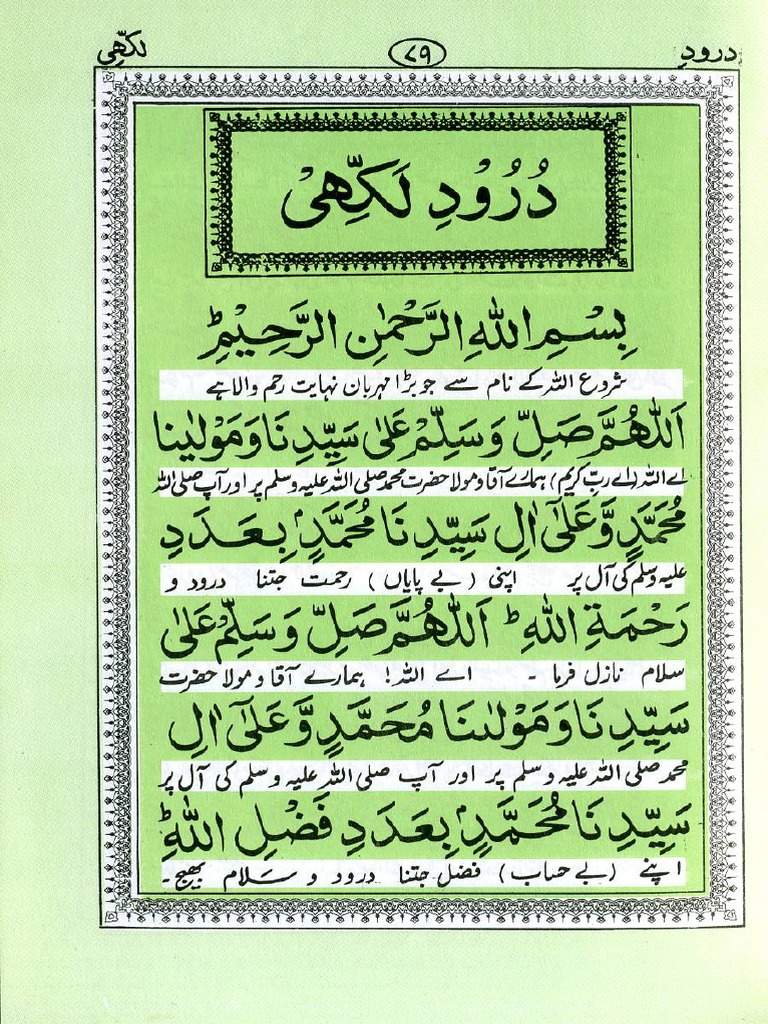 درودِ
۷۹
لکھی
دُرُوْدِ لَکِّھیْ
بِسْمِ اللّٰهِ الرَّحْمٰنِ الرَّحِیْمِ ؕ
شروع اللہ کے نام سے جو بڑا مہربان نہایت رحم والا ہے
اَللّٰهُمَّ صَلِّ وَسَلِّمْ عَلٰی سَیِّدِنَا وَمَوْلٰینَا
اے اللہ (اے ربّ کریم) ہمارے آقا و مولا حضرت محمد صلی اللہ علیہ وسلم پر اور آپ صلی اللہ
مُحَمَّدٍ وَّعَلٰۤی اٰلِ سَیِّدِنَا مُحَمَّدٍۭ بِعَدَدِ
علیہ وسلم کی آل پر اپنی (بے پایاں) رحمت جتنا درود و
رَحْمَةِ اللّٰهِ ؕ اَللّٰهُمَّ صَلِّ وَسَلِّمْ عَلٰی
سلام نازل فرما ۔ اے اللہ! ہمارے آقا و مولا حضرت
سَیِّدِنَا وَمَوْلٰىنَا مُحَمَّدٍ وَّعَلٰۤی اٰلِ
محمد صلی اللہ علیہ وسلم پر اور آپ صلی اللہ علیہ وسلم کی آل پر
سَیِّدِنَا مُحَمَّدٍۭ بِعَدَدِ فَضْلِ اللّٰهِ ؕ
اپنے (بے حساب) فضل جتنا درود و سلام بھیج ۔